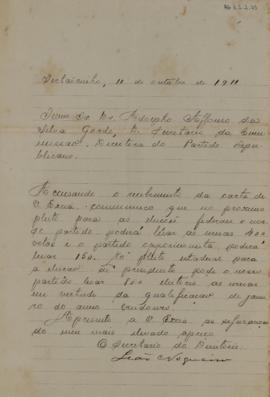 11 de outubro de 1911
Exmo Sr. Dr. Adolpho Affonso da
Silva Gordo, 1º Secretario da Com-
missão Directora do Partido Repu-
blicano.
Accusando o recebimento da carta de
V. Excia communico que no proximo
pleito para as eleições federaes o nos-
so partido poderá levar às urnas 400
votos e o partido opposicionista poderá
levar 150. No pleito estadual para
a eleição de presidente pode o nosso
partido levar 800 eleitores às urnas
em virtude da qualificação de janei-
ro do anno vindouro.
Apresento a V. Excia as
do meu mais elevado apreço
O Secretario do Directorio
João Nogueira